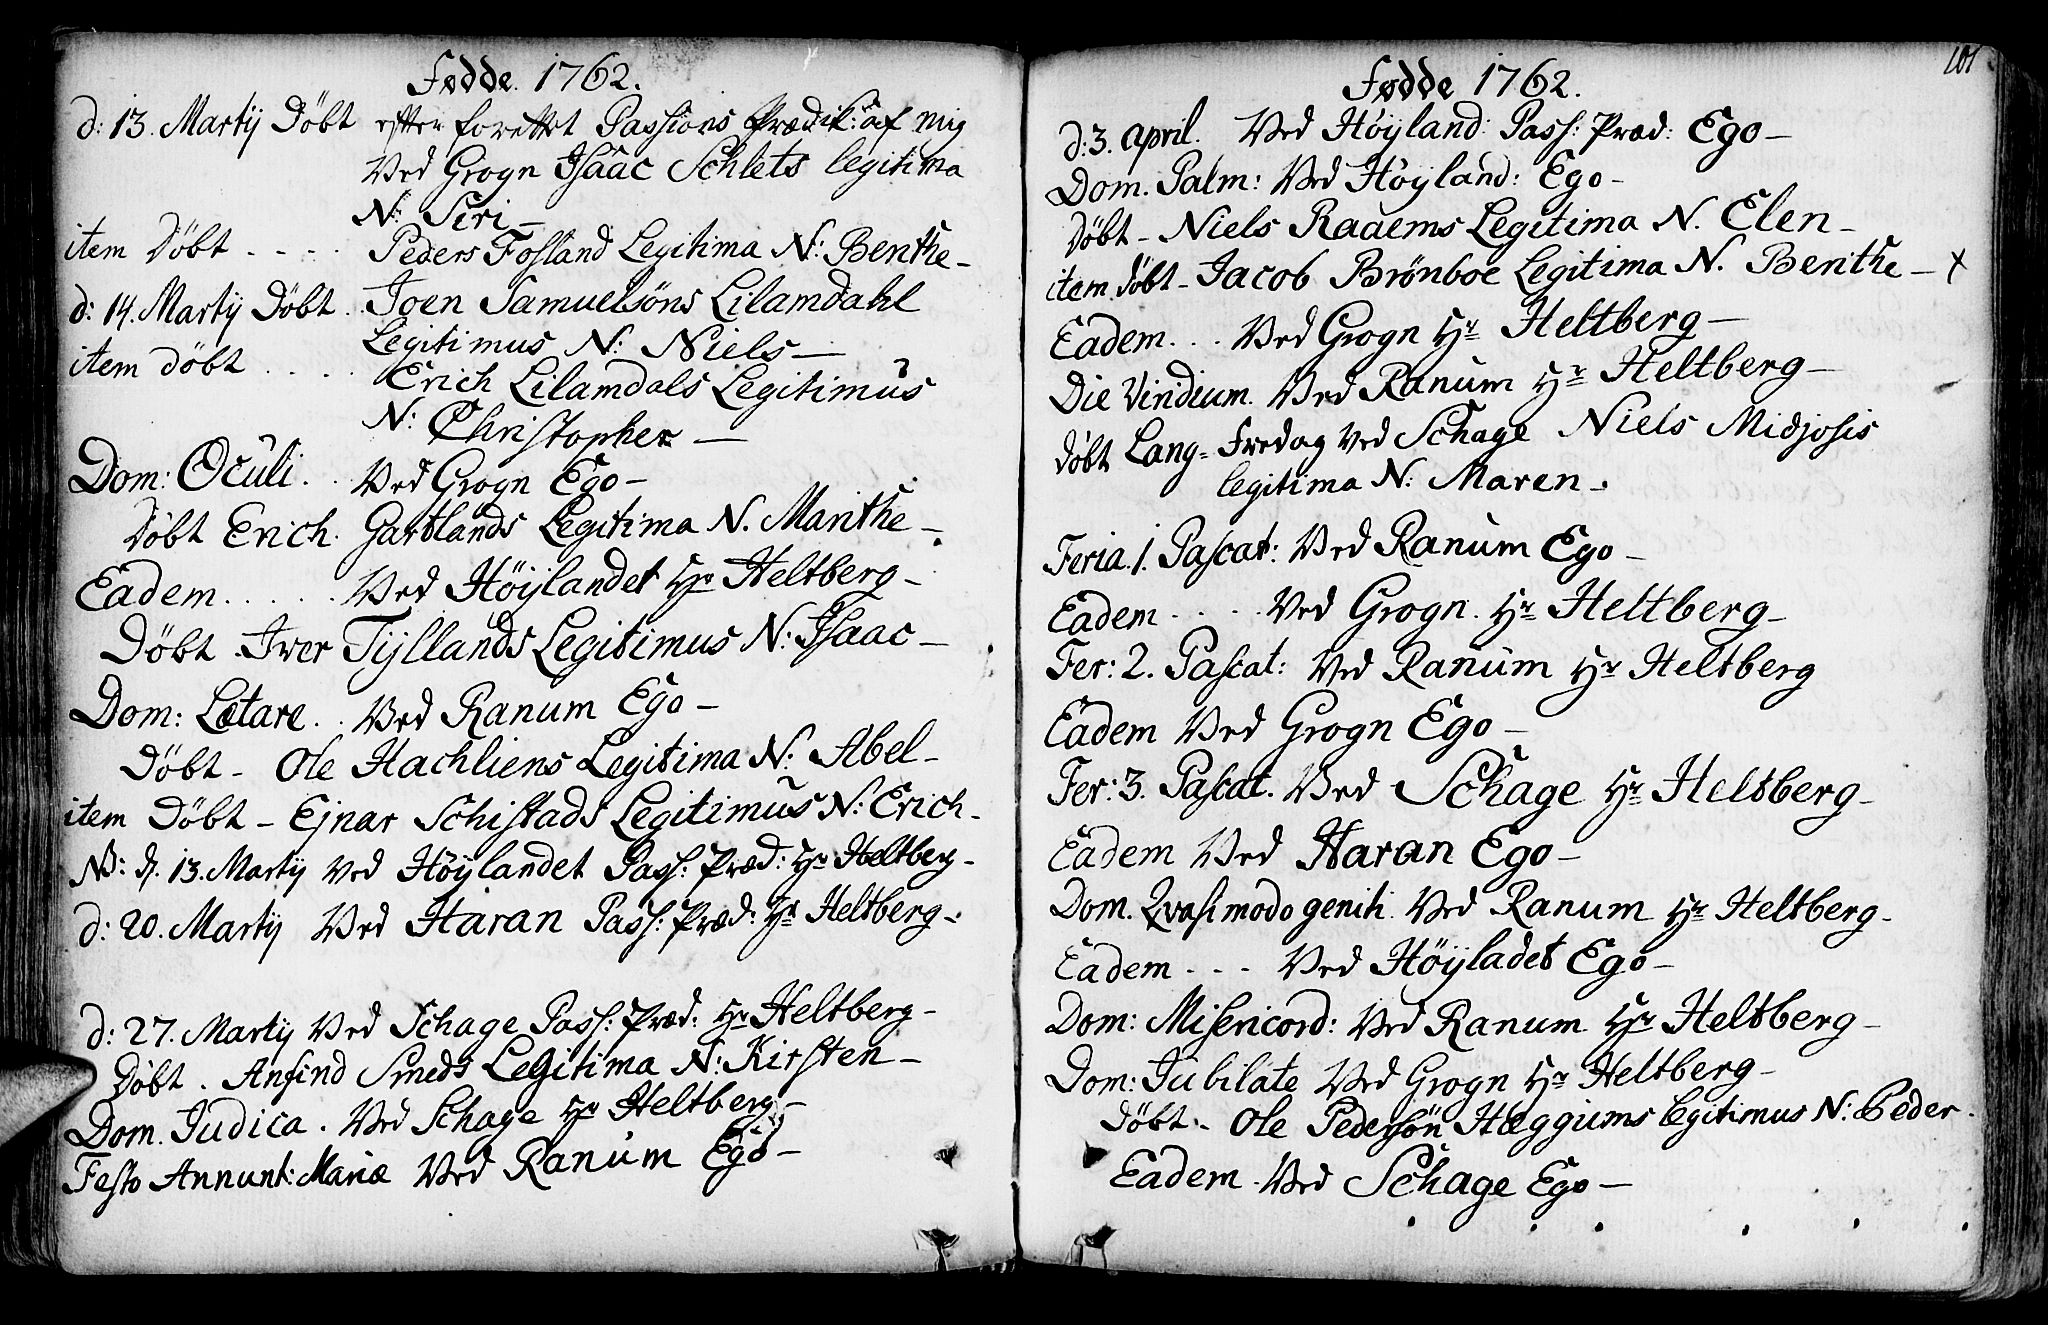 Fødde 1762.
d: 13. Martij Döbt efter forettet Passions Prædik: af mig
Ved Grogn Isaac Schlets legitima
N: Siri –
item Döbt - - - - Peders Fosland Legitima N: Benthe –
d: 14. Martij Döbt. Joen Samuelsöns Lilamdahl
Legitimus N: Niels –
item döbt . . . . Erich Lilamdals Legitimus
N: Christopher –
Dom: Oculi. . Ved Grogn Ego –
Döbt Erich Gartlands Legitima N. Marithe –
Eadem . . . . . Ved Höijlandet Hr Heltberg –
Döbt Iver Tijllands Legitimus N: Isaac –
Dom: Lætare . . Ved Ranum Ego –
Döbt – Ole Hachliens Legitima N: Abel –
item Döbt – Ejnar Schistads Legitimus N: Erich –
NB: d. 13. Martij Ved Höijlandet Pass: Præd: Hr Heltberg –
d: 20. Martij Ved Haran Pass: Præd: Hr Heltberg –
d: 27. Martij Ved Schage Pass: Præd: Hr Heltberg –
Döbt . Anfind Smeds Legitima N: Kirsten –
Dom. Judica . Ved Schage Hr Heltberg –
Festo Annunt: Mariæ Ved Ranum Ego –
101
Fødde 1762.
d: 3. april. Ved Höijland: Pass: Præd: Ego –
Dom. Palm: Ved Höijland: Ego –
Döbt – Niels Raaems Legitima N. Elen –
item döbt – Jacob Brönboe Legitima N. Benthe – x
Eadem . . . Ved Grogn Hr Heltberg –
Die Viridium. Ved Ranum Hr Heltberg –
Döbt Lang= Fredag Ved Schage Niels Midjosis
legitima N: Maren –
Feria. 1. Pascat: Ved Ranum Ego –
Eadem . . . . Ved Grogn. Hr Heltberg –
Fer: 2. Pascat: Ved Ranum Hr Heltberg
Eadem Ved Grogn Ego –
Fer: 3. Pascat. Ved Schage Hr Heltberg –
Eadem Ved Haran Ego –
Dom. Qvasimodo geniti Ved Ranum Hr Heltberg –
Eadem . . . Ved Höijladet Ego –
Dom: Misericord: Ved Ranum Hr Heltberg –
Dom: Jubilate Ved Grogn Hr Heltberg –
Döbt. – Ole Pedersön Hæggiums Legitimus N: Peder.
Eadem . Ved Schage Ego –